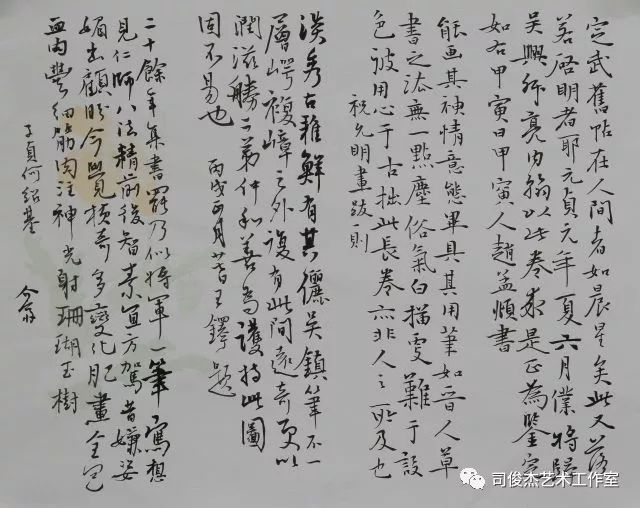 定武舊帖在人間者如晨星矣此又落
若啓明者耶元貞元年夏六月僕將歸
吳興孫亮內翰以此卷求是正為鑒定
如右甲寅日甲寅人趙孟頫書
能畫其神情意態畢具其用筆如晉人草
書之法無一點塵俗氣白描更難于設
色被用心于古拙此長卷亦非人之所及也
祝允明畫跋一則
淡秀古雅鮮有其儷吳鎮筆不一
層崿複嶂之外復有此間遠奇更以
潤滋勝之弟仲和善為護持此圖
固不易也 丙戌五月廿三日王鐸題
二十餘年集書罷乃似將軍一筆寫想
見仁師八法精前後智業宜方駕昔嫌姿
媚出顧盼今覺橫奇多變化肥畫全包
血肉豐細筋內注神光射珊瑚玉樹
子貞何紹基
司俊杰艺术工作室